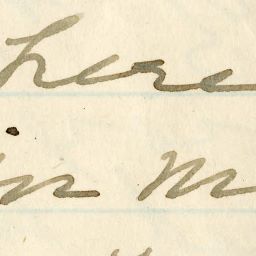 here
in m